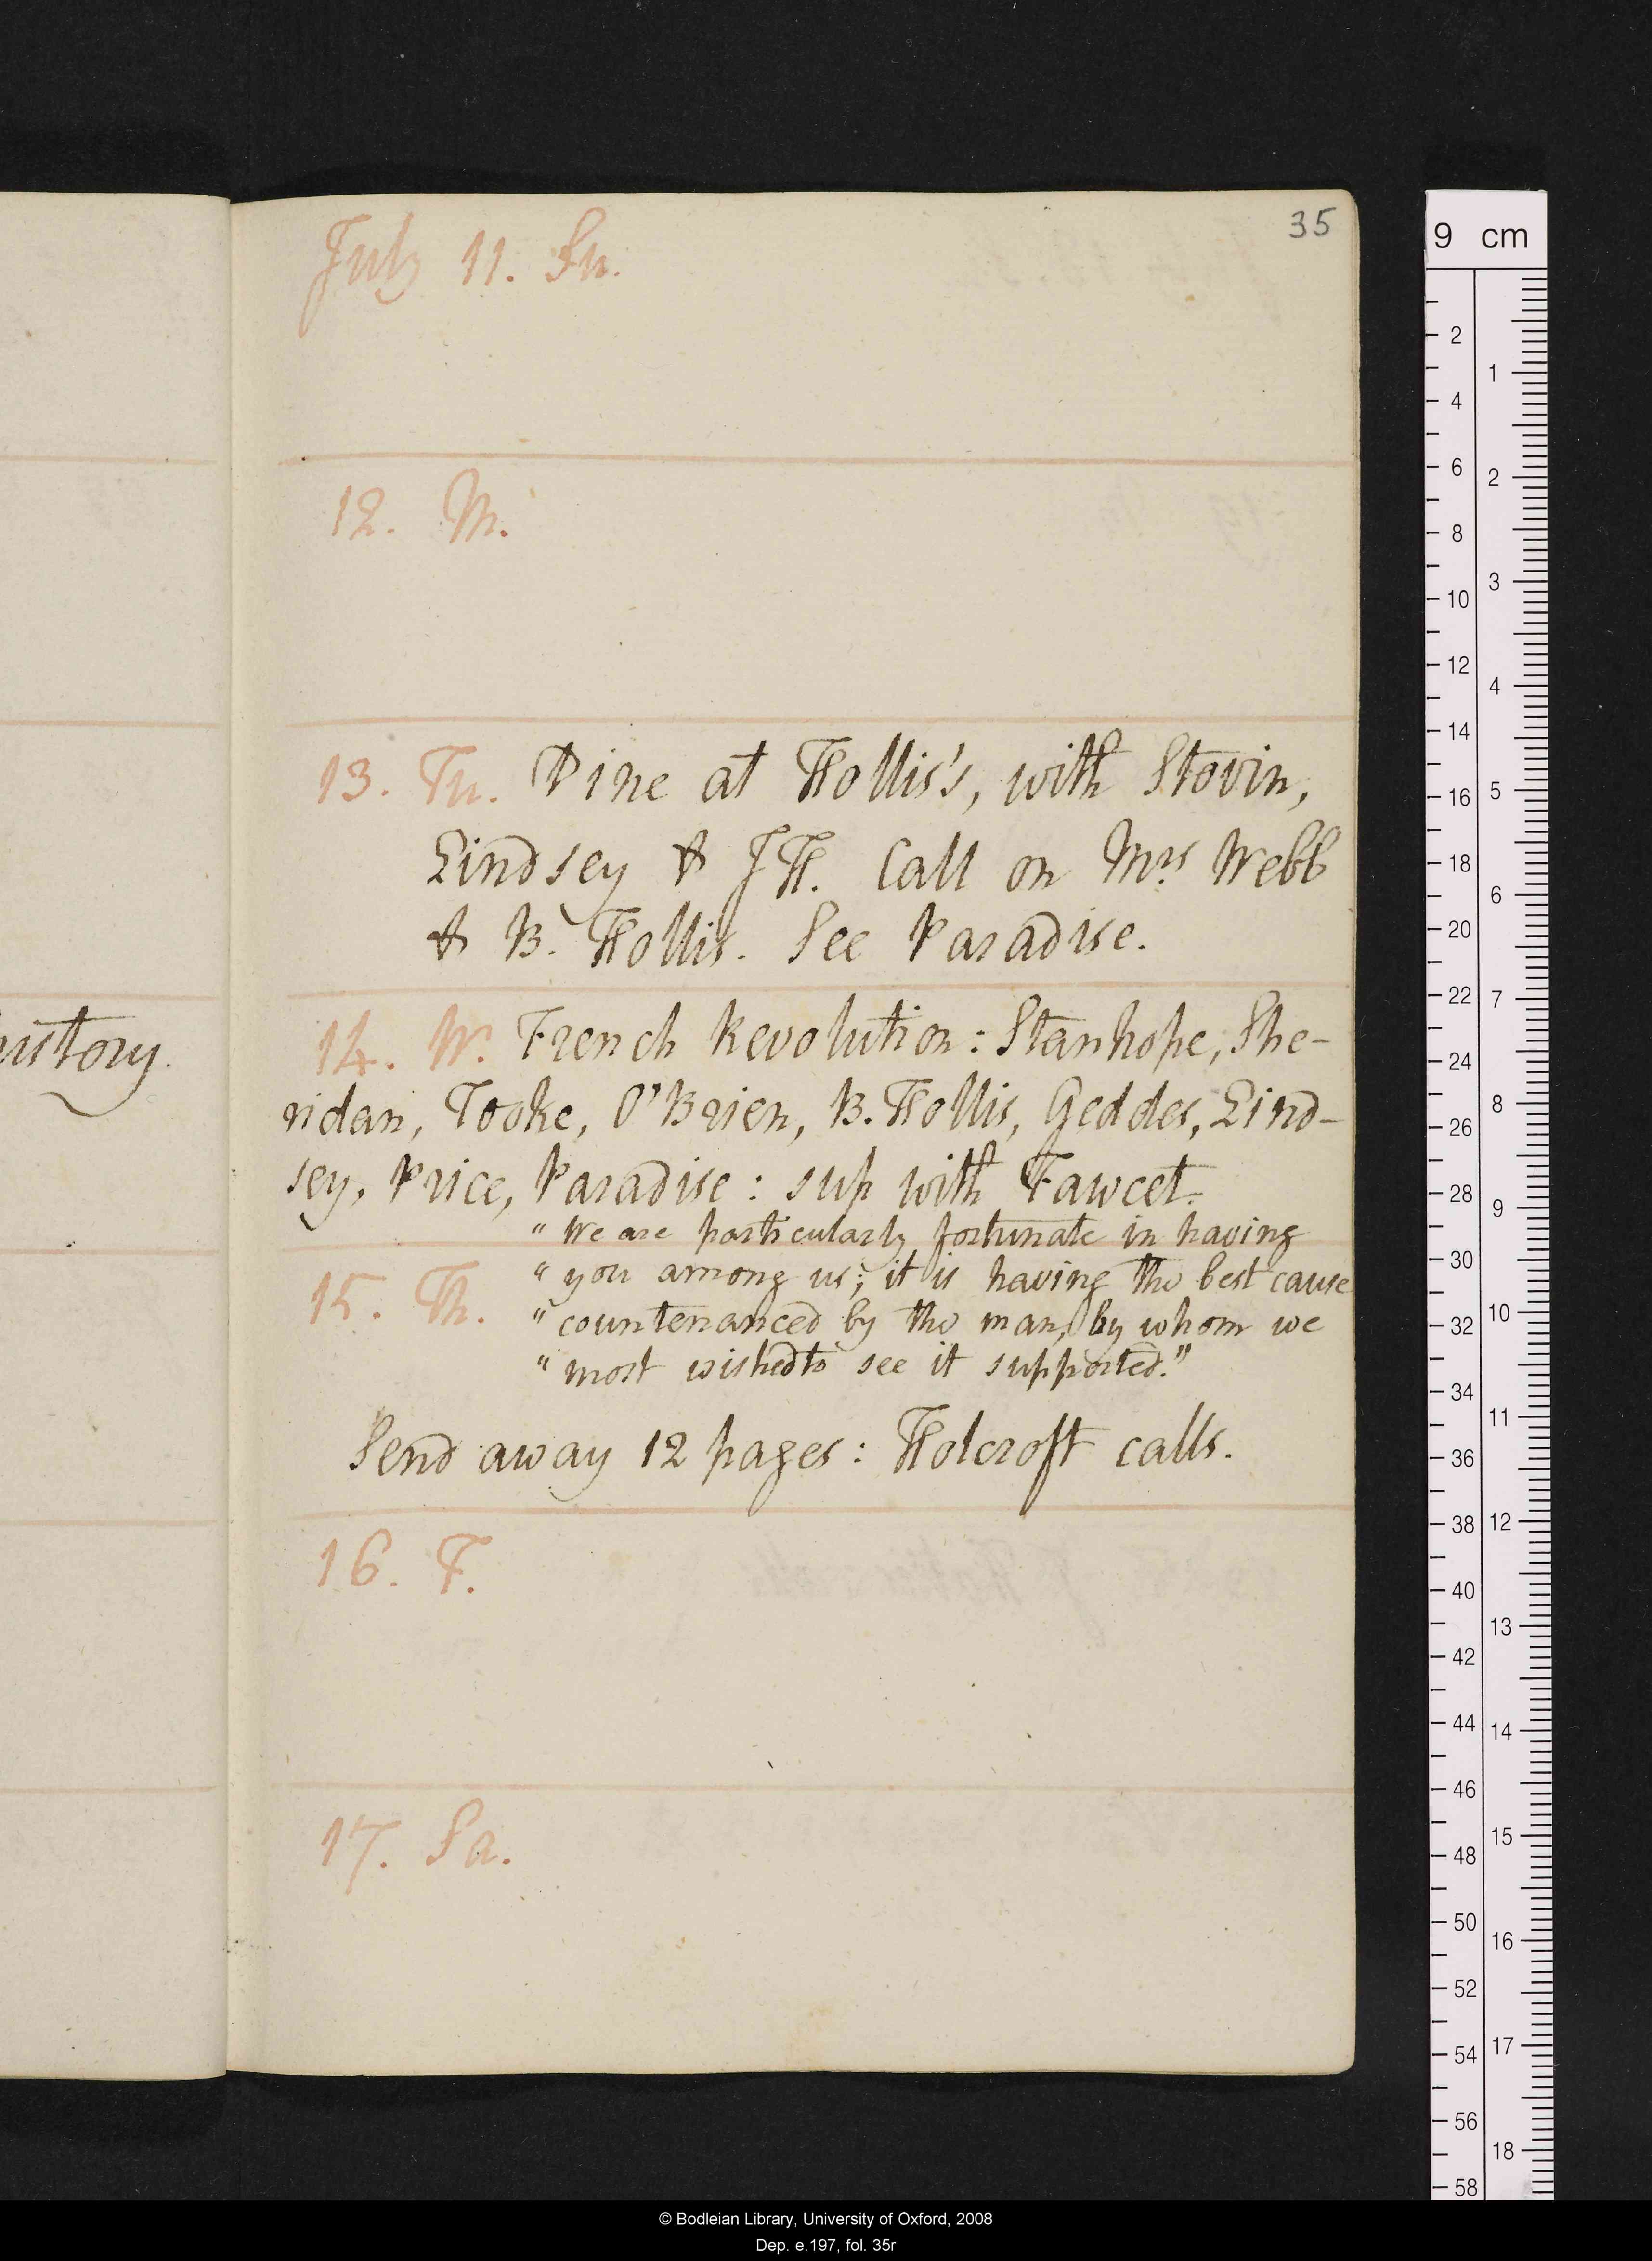 35
July 11. Su.
12. M.
13. Tu. Dine at Hollis's, with Stovin,
Lindsey & JH. Call on Mrs Webb
& B. Hollis. See Paradise.
istory.
14. W. French Revolution: Stanhope, She-
ridan, Tooke, O'Brien, B. Hollis, Geddes, Lind-
sey, Price, Paradise: sup with Fawcet.
"We are particularly fortunate in having
15. Th. "you among us; it is having the best cause
"countenanced by the man, by whom we
"most wished to see it supported."
Send away 12 pages: Holcroft calls.
16. F.
17. Sa.
9 cm
2
4
6
8
10
12
14
16
18
20
22
24
26
28
30
32
34
36
38
40
42
44
46
48
50
52
54
56
58
1
2
3
4
5
6
7
8
9
10
11
12
13
14
15
16
17
18
© Bodleian Library, University of Oxford, 2008
Dep. e.197, fol. 35r